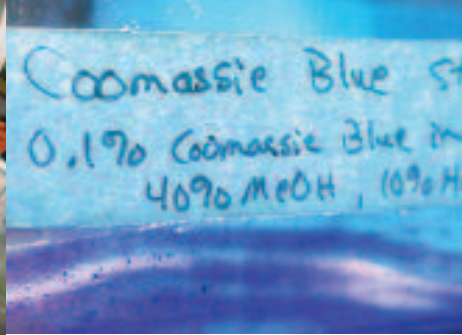 Coomassie Blue St
0.1% Coomassie Blue in
40% MeOH, 10% H